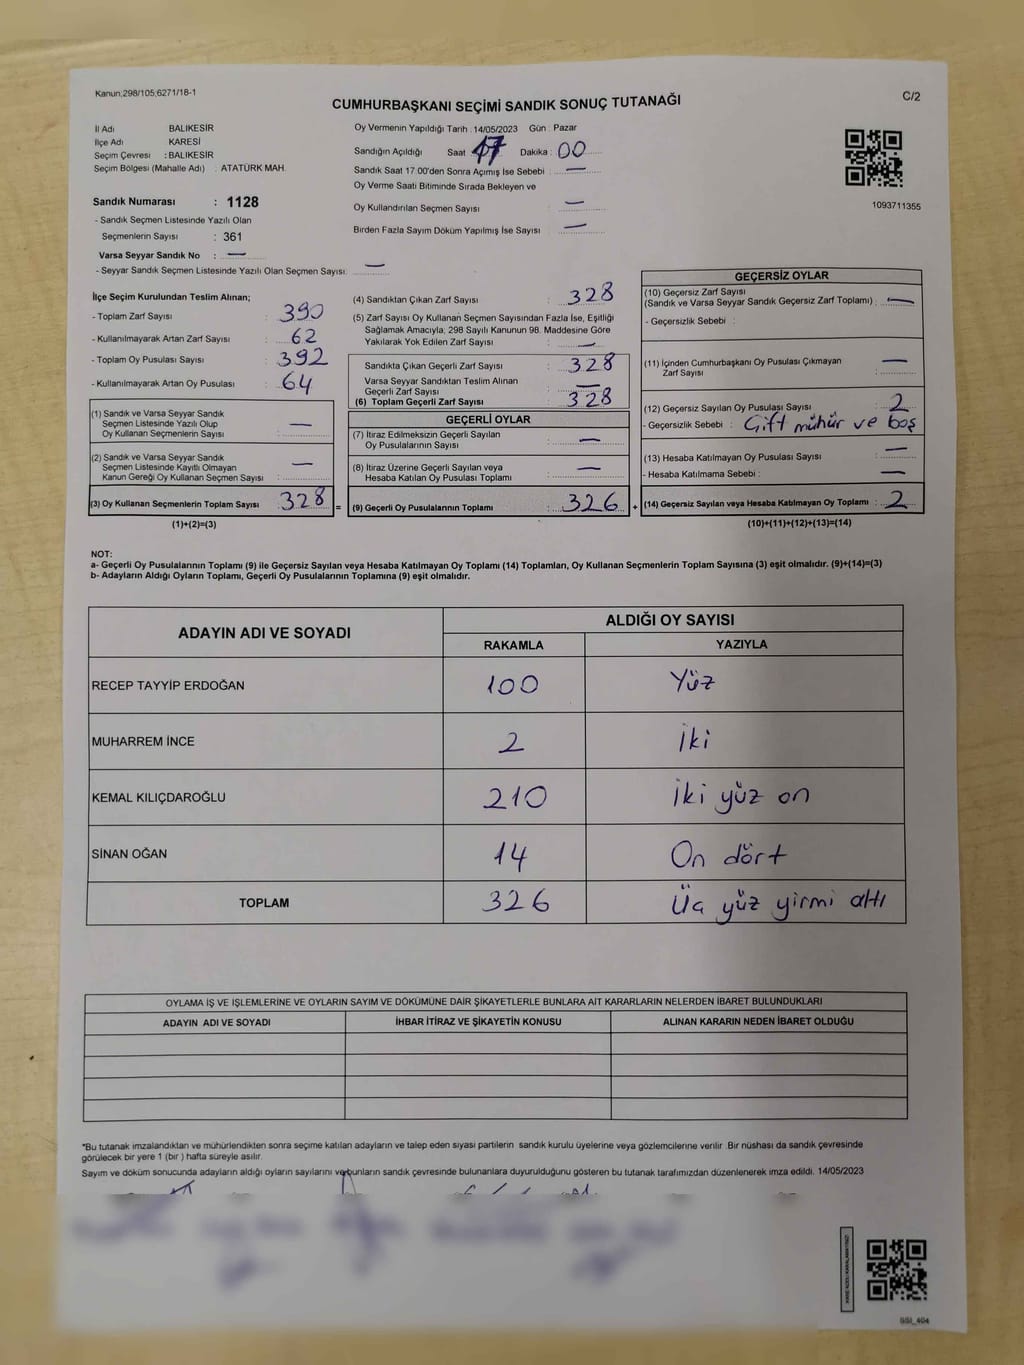 Kanun;298/105;6271/18-1
C/2
CUMHURBAŞKANI SEÇİMİ SANDIK SONUÇ TUTANAĞI
İl Adı BALIKESİR
İlçe Adı KARESİ
Seçim Çevresi : BALIKESİR
Seçim Bölgesi (Mahalle Adı) : ATATÜRK MAH.
Oy Vermenin Yapıldığı Tarih : 14/05/2023 Gün : Pazar
Sandığın Açıldığı Saat 17 Dakika : 00
Sandık Saat 17.00'den Sonra Açımış İse Sebebi : —
Oy Verme Saati Bitiminde Sırada Bekleyen ve
Oy Kullandırılan Seçmen Sayısı : —
Birden Fazla Sayım Döküm Yapılmış İse Sayısı : —
1093711355
Sandık Numarası : 1128
- Sandık Seçmen Listesinde Yazılı Olan
Seçmenlerin Sayısı : 361
Varsa Seyyar Sandık No : —
- Seyyar Sandık Seçmen Listesinde Yazılı Olan Seçmen Sayısı: —
İlçe Seçim Kurulundan Teslim Alınan;
- Toplam Zarf Sayısı : 390
- Kullanılmayarak Artan Zarf Sayısı : 62
- Toplam Oy Pusulası Sayısı : 392
- Kullanılmayarak Artan Oy Pusulası : 64
(1) Sandık ve Varsa Seyyar Sandık
Seçmen Listesinde Yazılı Olup
Oy Kullanan Seçmenlerin Sayısı : —
(2) Sandık ve Varsa Seyyar Sandık
Seçmen Listesinde Kayıtlı Olmayan
Kanun Gereği Oy Kullanan Seçmen Sayısı : —
(3) Oy Kullanan Seçmenlerin Toplam Sayısı : 328
(1)+(2)=(3)
(4) Sandıktan Çıkan Zarf Sayısı : 328
(5) Zarf Sayısı Oy Kullanan Seçmen Sayısından Fazla İse, Eşitliği
Sağlamak Amacıyla; 298 Sayılı Kanunun 98. Maddesine Göre
Yakılarak Yok Edilen Zarf Sayısı : —
Sandıkta Çıkan Geçerli Zarf Sayısı : 328
Varsa Seyyar Sandıktan Teslim Alınan
Geçerli Zarf Sayısı : —
(6) Toplam Geçerli Zarf Sayısı : 328
GEÇERLİ OYLAR
(7) İtiraz Edilmeksizin Geçerli Sayılan
Oy Pusulalarının Sayısı : —
(8) İtiraz Üzerine Geçerli Sayılan veya
Hesaba Katılan Oy Pusulası Toplamı : —
= (9) Geçerli Oy Pusulalarının Toplamı : 326 +
GEÇERSİZ OYLAR
(10) Geçersiz Zarf Sayısı
(Sandık ve Varsa Seyyar Sandık Geçersiz Zarf Toplamı) : —
- Geçersizlik Sebebi :
(11) İçinden Cumhurbaşkanı Oy Pusulası Çıkmayan
Zarf Sayısı : —
(12) Geçersiz Sayılan Oy Pusulası Sayısı : 2
- Geçersizlik Sebebi : Çift mühür ve boş
(13) Hesaba Katılmayan Oy Pusulası Sayısı —
- Hesaba Katılmama Sebebi : —
(14) Geçersiz Sayılan veya Hesaba Katılmayan Oy Toplamı : 2
(10)+(11)+(12)+(13)=(14)
NOT:
a- Geçerli Oy Pusulalarının Toplamı (9) ile Geçersiz Sayılan veya Hesaba Katılmayan Oy Toplamı (14) Toplamları, Oy Kullanan Seçmenlerin Toplam Sayısına (3) eşit olmalıdır. (9)+(14)=(3)
b- Adayların Aldığı Oyların Toplamı, Geçerli Oy Pusulalarının Toplamına (9) eşit olmalıdır.
ADAYIN ADI VE SOYADI ALDIĞI OY SAYISI
RAKAMLA YAZIYLA
RECEP TAYYİP ERDOĞAN 100 Yüz
MUHARREM İNCE 2 İki
KEMAL KILIÇDAROĞLU 210 İki yüz on
SİNAN OĞAN 14 On dört
TOPLAM 326 Üç yüz yirmi altı
OYLAMA İŞ VE İŞLEMLERİNE VE OYLARIN SAYIM VE DÖKÜMÜNE DAİR ŞİKAYETLERLE BUNLARA AİT KARARLARIN NELERDEN İBARET BULUNDUKLARI
ADAYIN ADI VE SOYADI İHBAR İTİRAZ VE ŞİKAYETİN KONUSU ALINAN KARARIN NEDEN İBARET OLDUĞU
*Bu tutanak imzalandıktan ve mühürlendikten sonra seçime katılan adayların ve talep eden siyasi partilerin sandık kurulu üyelerine veya gözlemcilerine verilir. Bir nüshası da sandık çevresinde
görülecek bir yere 1 (bir ) hafta süreyle asılır.
Sayım ve döküm sonucunda adayların aldığı oyların sayılarını ve bunların sandık çevresinde bulunanlara duyurulduğunu gösteren bu tutanak tarafımızdan düzenlenerek imza edildi. 14/05/2023